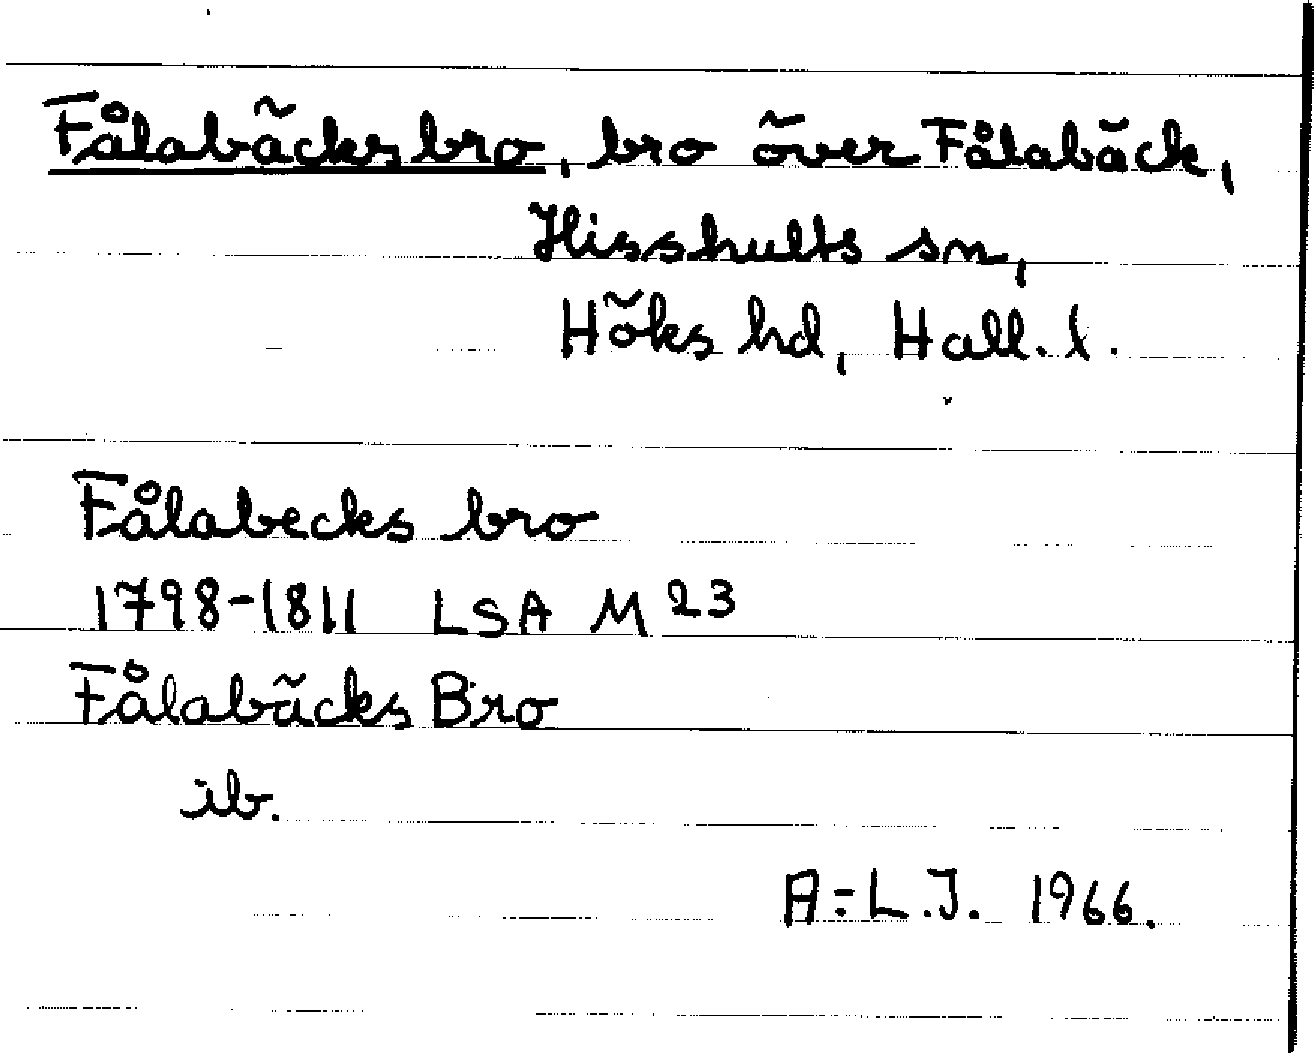 Fålabäcksbro, bro över Fålabäck,
Hisshults sn,
Höks hd, Hall. l.
Fålabecks bro
1798-1811 LSA M 23
Fålabäcks Bro
ib.
A-L.J. 1966.